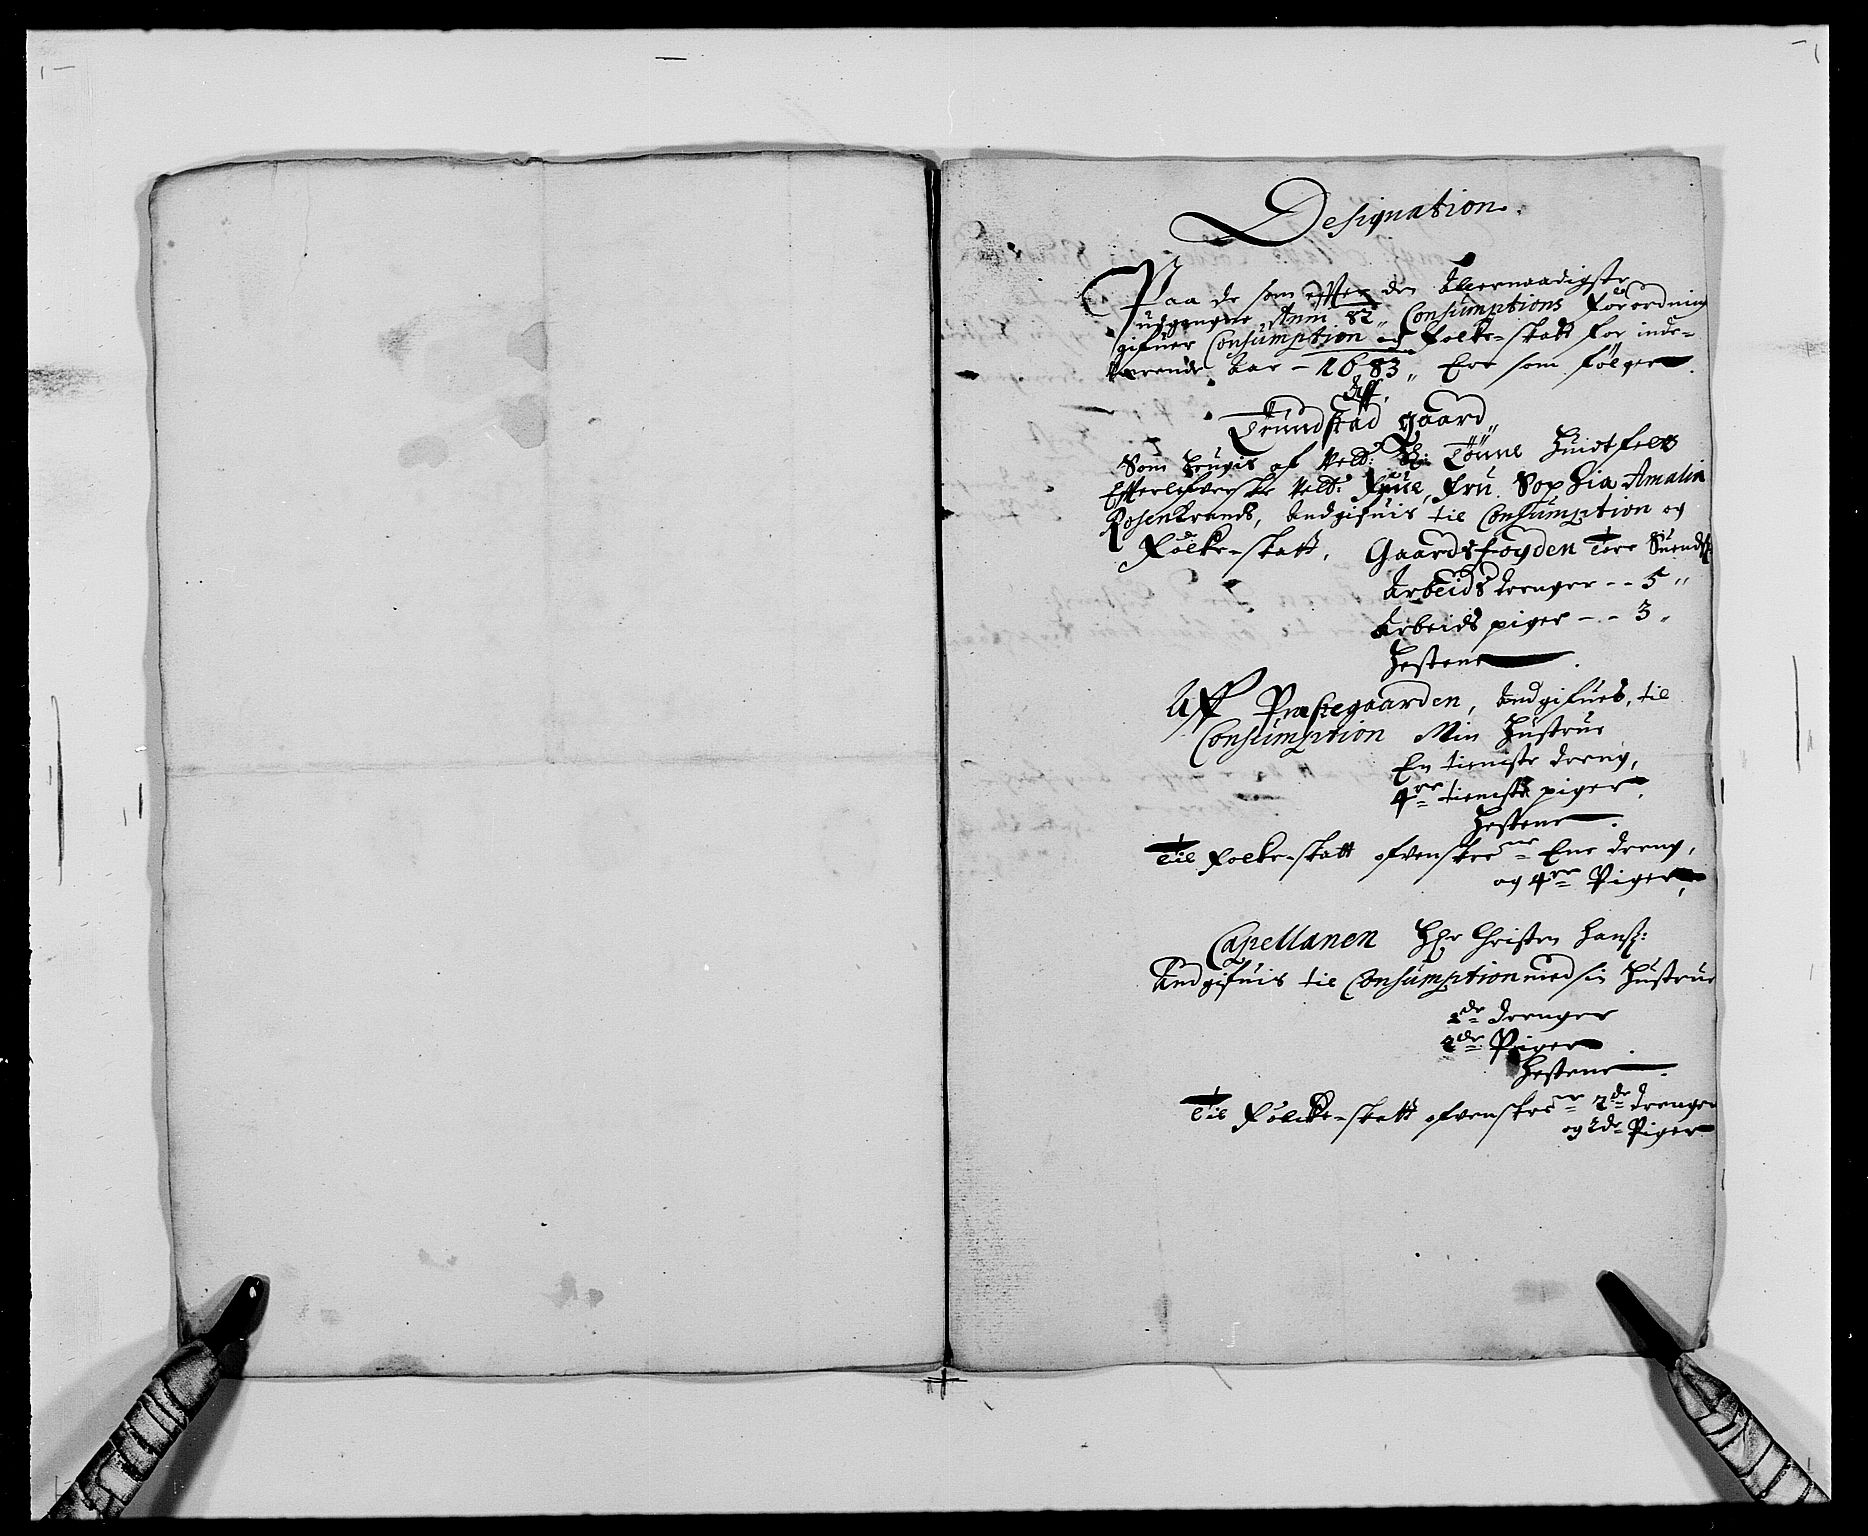 Designation.
Paa de som efter den Allernaadigste
udgangne Anni 82, Consumptions Forordning
gifuer Consumption og Folke-skatt for inde-
værende Aar - 1683, Ere som følger.
Aff
Trundstad gaard,
Som bruges af Velb: Hr: Tönne Huidtfelts
Efterlefverske Velb: Frue, Fru Sophia Amalia
Rosenkrands, Andgifuis til Consumption og
Folke-skatt, Gaardsfogden Tore Suends:
Arbeids drenger - - 5 "
Arbeids piger - . - 3 "
Hestene
Aff Præstegaarden, Andgifues, til
Consumption Min Hustrue
En tieniste dreng,
4re tieniste piger,
Hestene
Til Folke-skatt ofvenskrne Ene dreng,
og 4re Piger,
Capellanen Hr Christen Hans:
Andgifuis til Consumption med sin Hustrue
2de drenger
2de Piger
Hestene
Til Folke-skatt ofvenskrne 2de drenger
og 2de Piger